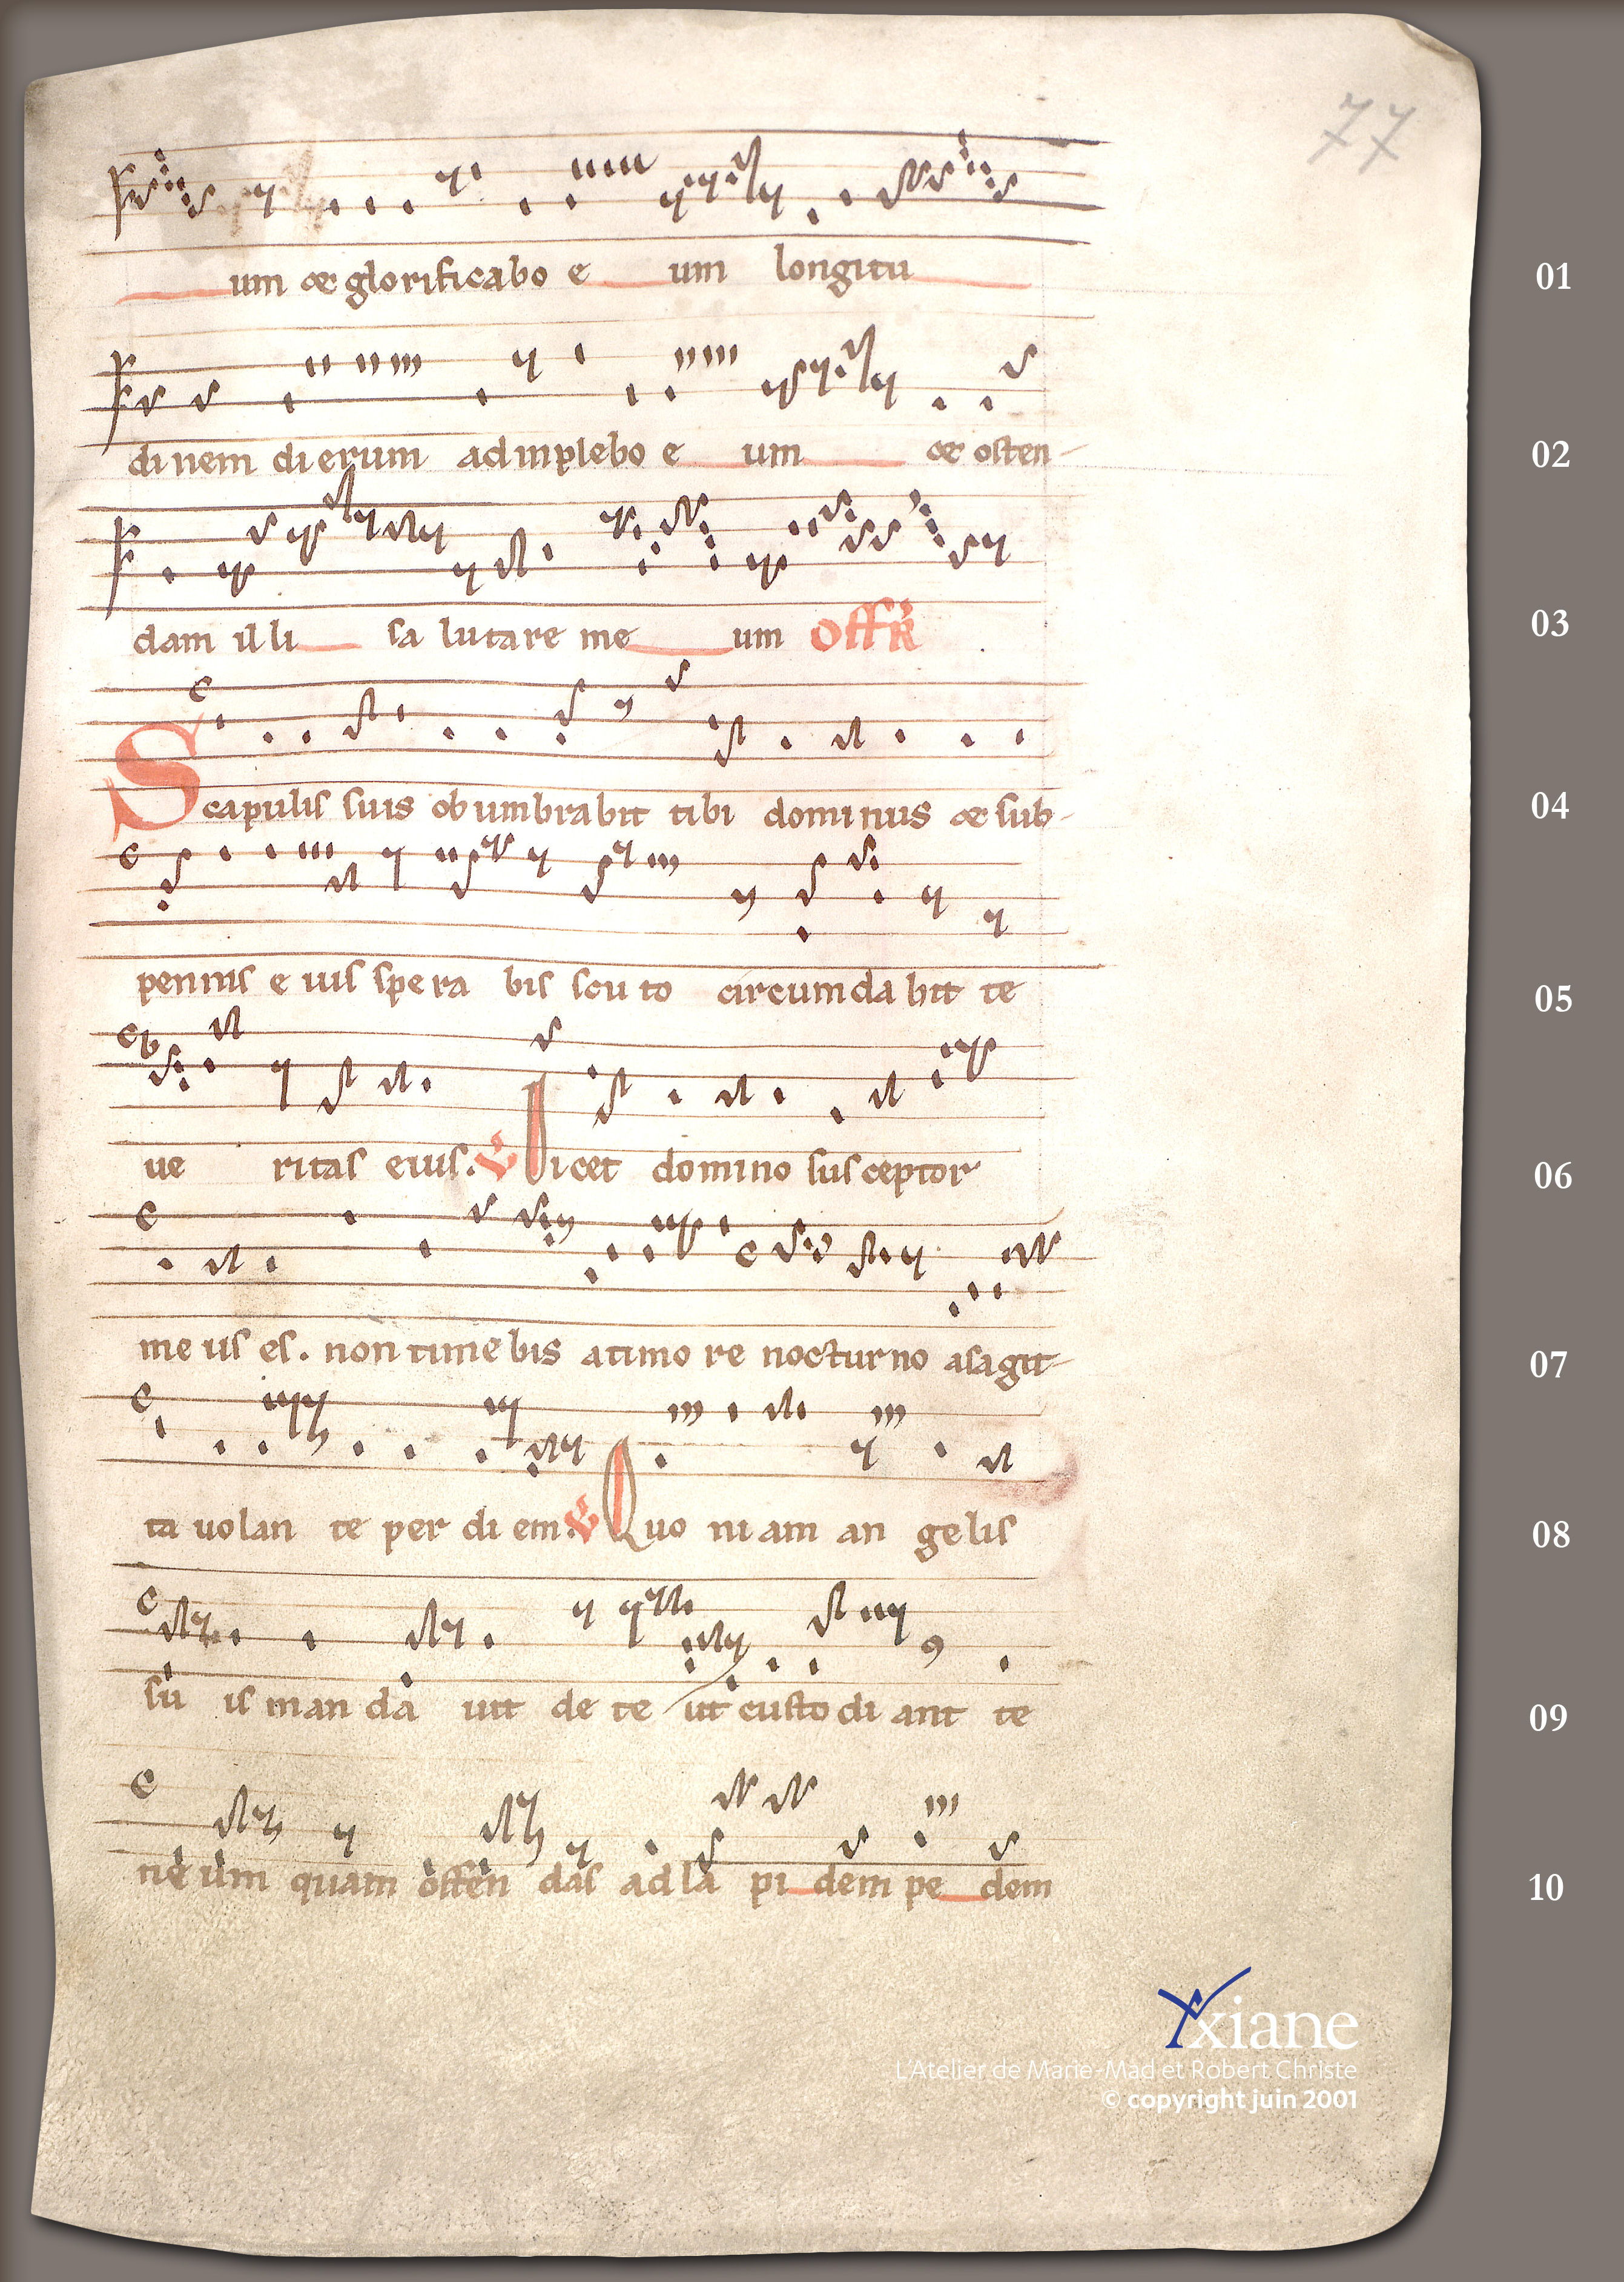 77
um & glorificabo e um longitu 01
dinem dierum adinplebo e um & osten- 02
dam illi sa lutare me um Offr 03
Scapulis suis obumbrabit tibi dominus & sub- 04
pennis e uis spera bis scuto circumdabit te 05
ue ritas eius. V Dicet domino susceptor 06
me us es. non timebis a timo re nocturno a sagit- 07
ta uolan te per di em. V Quo niam an gelis 08
su is man da uit de te ut custodi ant te 09
ne um quam offen das ad la pi dem pe dem 10
Axiane
L'Atelier de Marie-Mad et Robert Christe
© copyright juin 2001